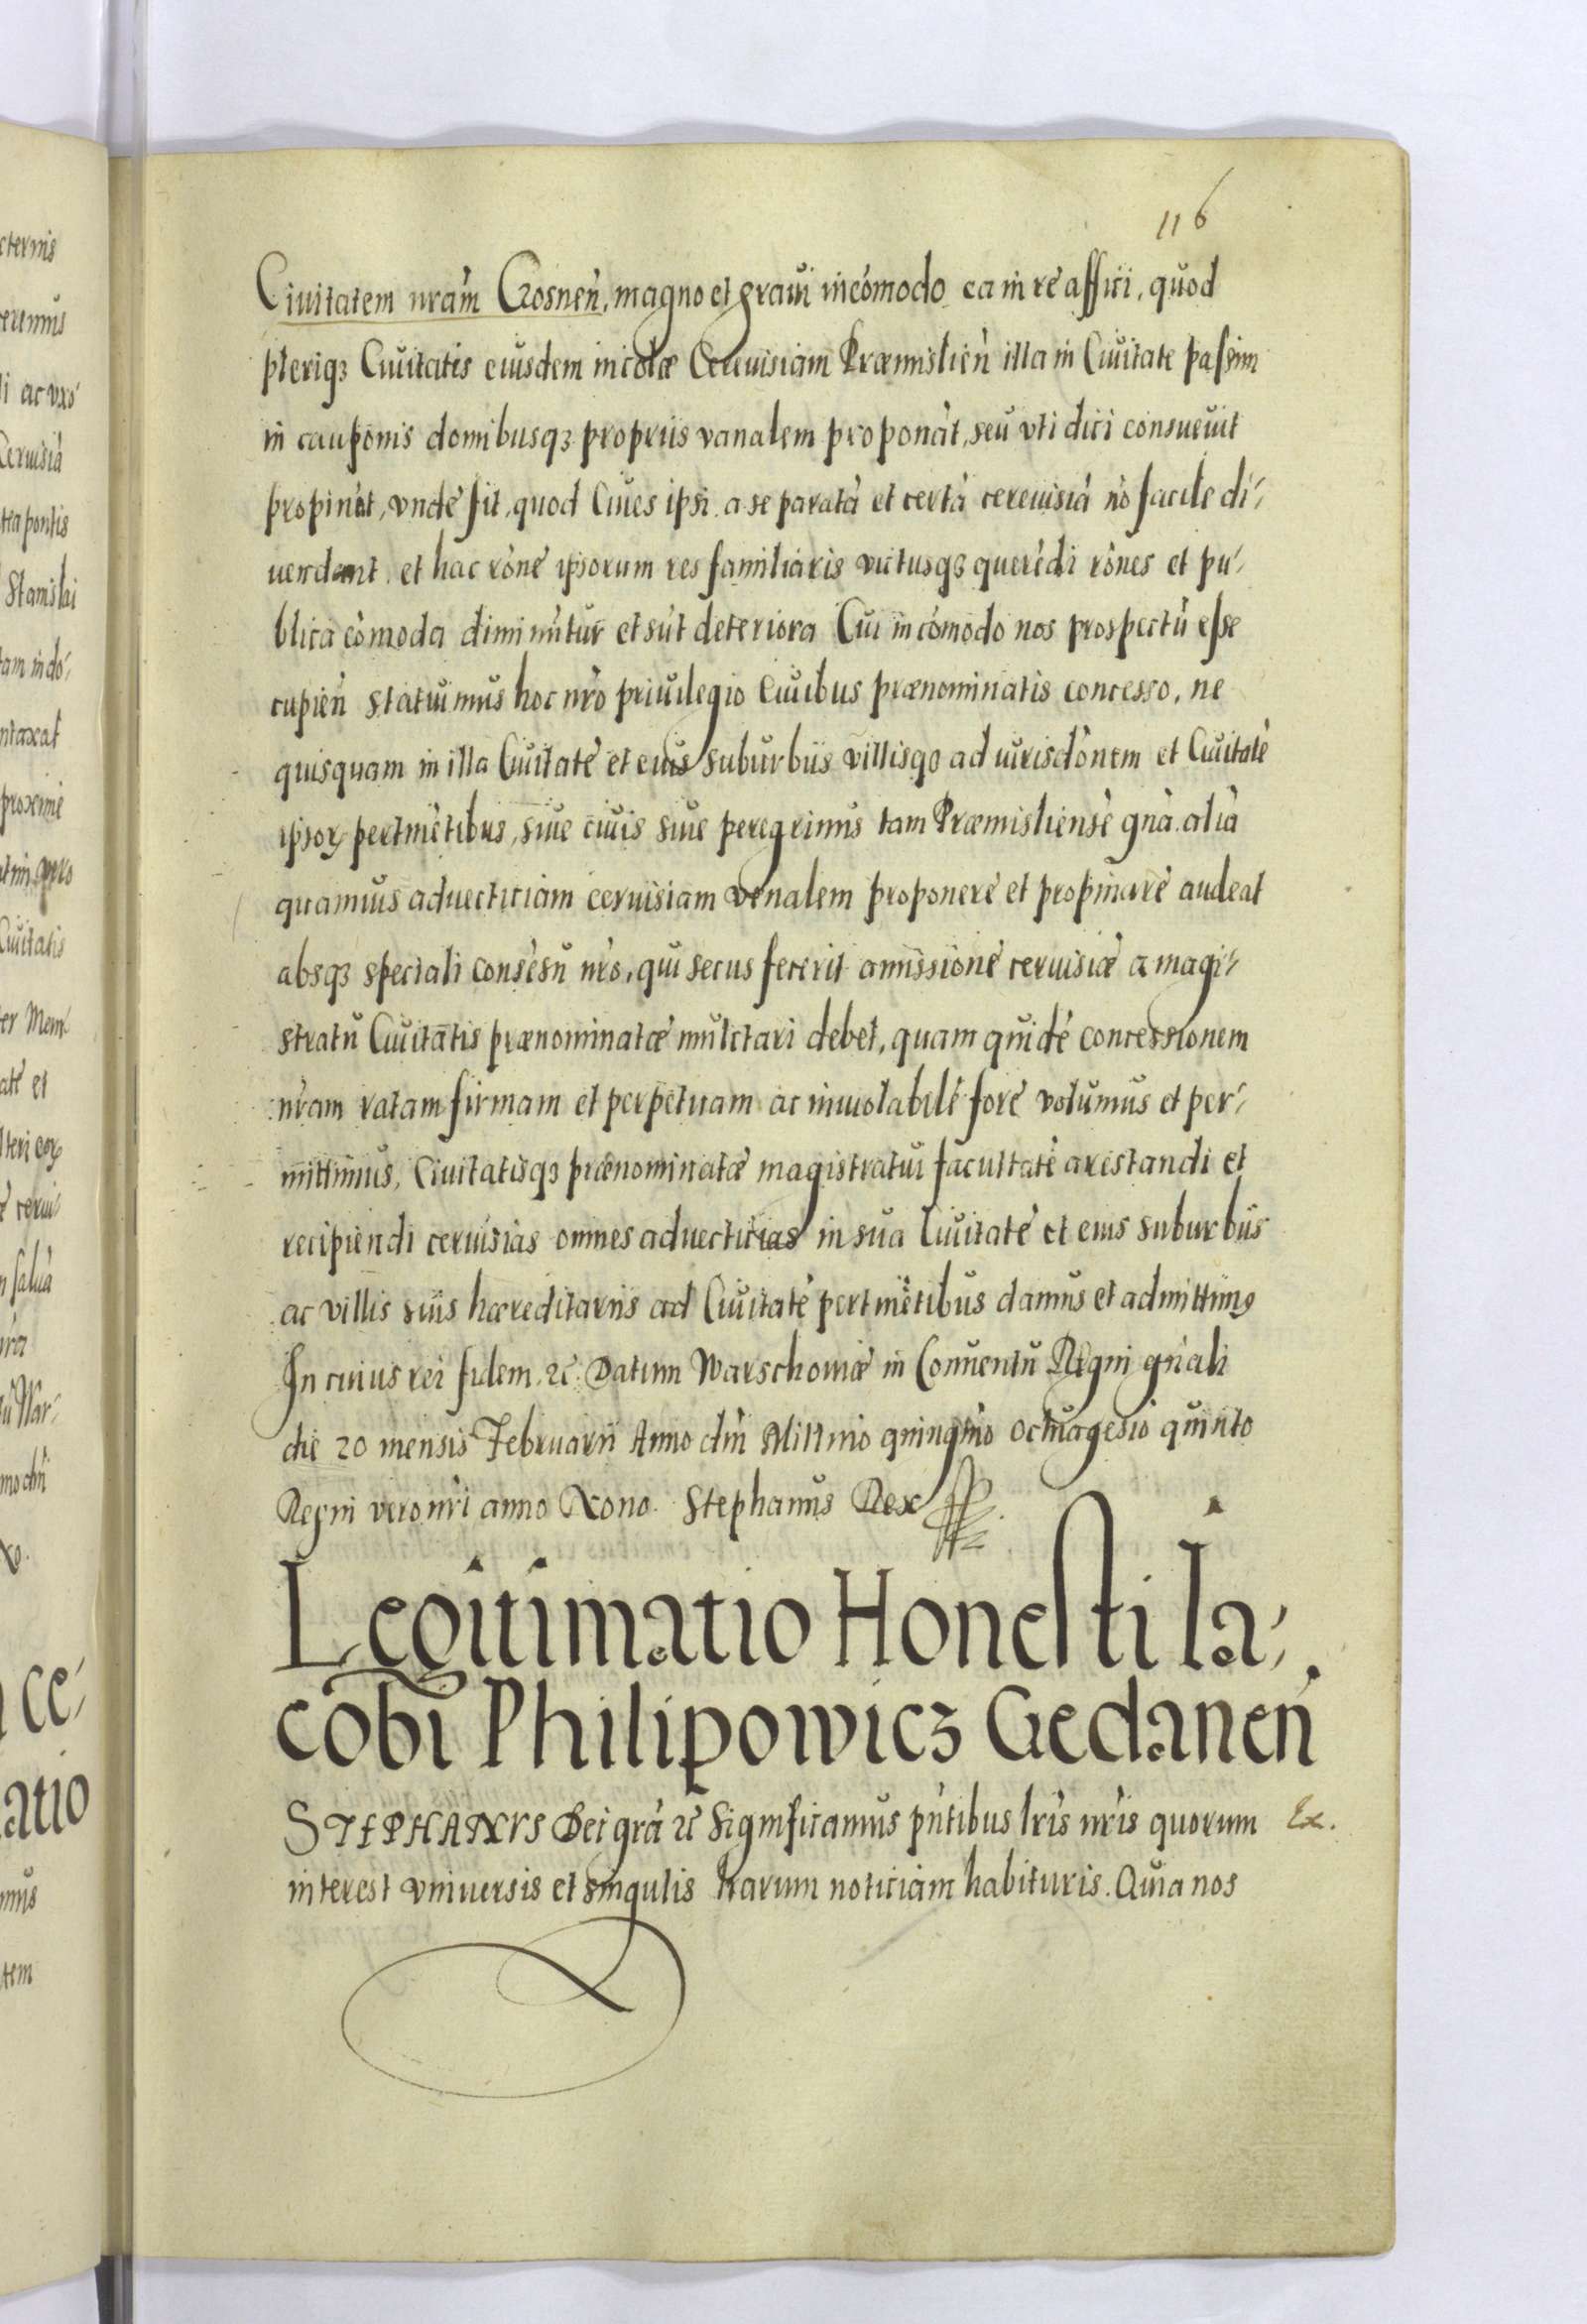 116
Ciuitatem nrãm Crosneñ, magno et graui incõmodo ea in re affici, quod
pleriqꝫ Ciuitatis eiusdem incolæ Cereuisiam Præmislieñ illa in Ciuitate passim
in cauponis domibusqꝫ propriis vænalem proponãt, seu vti dici consueuit
propinãt, vnde fit, quod Ciues ipsi a se paratã et certã cereuisiã nõ facile di-
uendant et hac rõne ipsorum res familiaris victusqꝫ querẽdi rõnes et pu-
blica cõmoda diminũtur et sũt deteriora Cui incõmodo nos prospectũ esse
cupieñ statuimus hoc nrõ priuilegio Ciuibus prænominatis concesso, ne
quisquam in illa Ciuitate et eius suburbiis villisqꝫ ad iurisdõnem et Ciuitatẽ
ipsoꝝ pertinẽtibus, siue ciuis siue peregrinus tam Præmisliensẽ qnã aliã
quamuis aduecticiam ceruisiam venalem proponere et propinare audeat
absqꝫ speciali consẽsu nrõ, qui secus fecerit amissione ceruisiæ a magi-
stratu Ciuitatis prænominatæ mulctari debet, quam quidẽ concessionem
nrãm ratam firmam et perpetuam ac inuiolabilẽ fore volumus et per-
mittimus, Ciuitatisqꝫ prænominatæ magistratui facultatẽ arestandi et
recipiendi ceruisias omnes aduecticias in sua Ciuitate et eius suburbiis
ac villis suis hæreditariis ad Ciuitatẽ pertinẽtibus damus et admittimꝰ
In cuius rei fidem ꝛc̃. Datum Warschouiæ in Conuentu Regni gñali
die 20 mensis Februarii Anno dñi Millmo quingmo octuagesio quinto
Regni vero nrĩ anno Nono. Stephanus Rex
Legitimatio Honesti Ia-
cobi Philipowicz Gedaneñ
STEPHANVS Dei grã ꝛc̃ Significamus pñtibus lrĩs nrĩs quorum
Ex.
interest vniuersis et singulis harum noticiam habituris. Quia nos